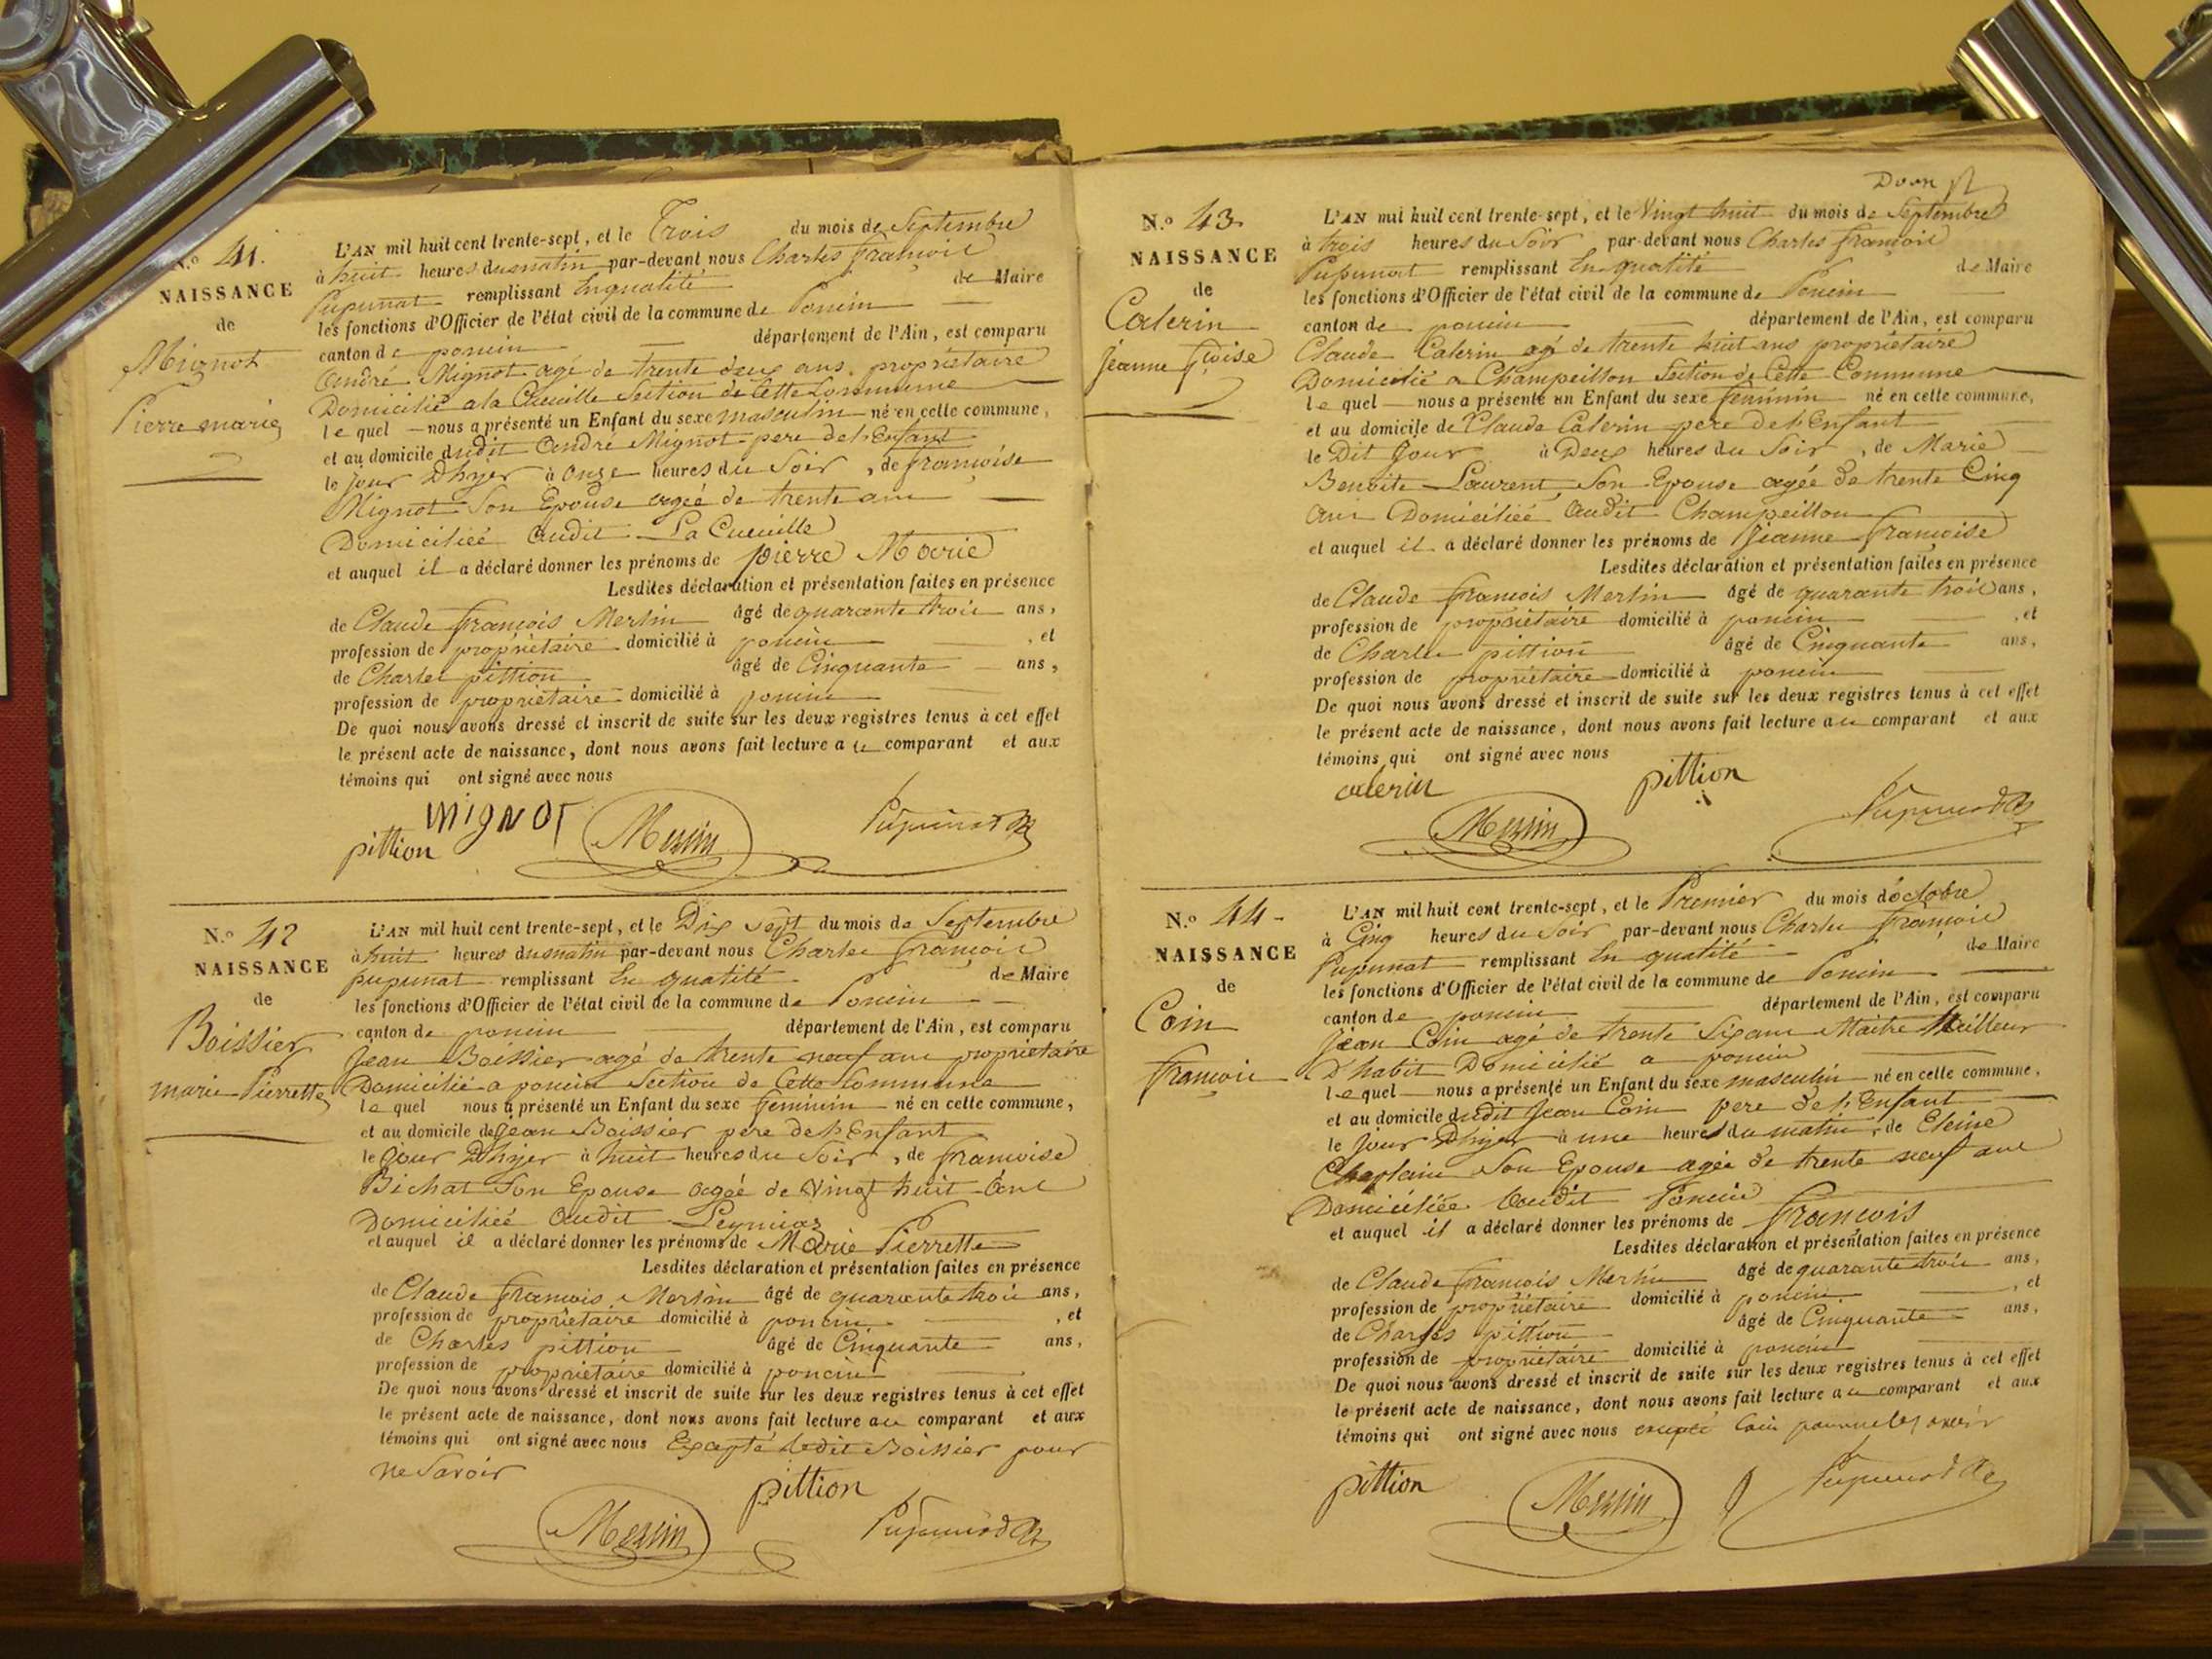 N.° 41.
NAISSANCE
de
Mignot
Pierre marie
L'AN mil huit cent trente-sept, et le Trois du mois de Septembre
à huit heures du matin par-devant nous Charles françois
Pupunat remplissant En qualité de Maire
les fonctions d'Officier de l'état civil de la commune de Poncin
canton de poncin département de l'Ain, est comparu
André Mignot agé de trente deux ans, propriétaire
Domicilié a la Cueuille Section de Cette Commune
le quel nous a présenté un Enfant du sexe masculin né en cette commune,
et au domicile dudit André Mignot pere de l'Enfant
le jour D'hyer à onze heures du Soir, de françoise
Mignot Son Epouse agée de trente ans
Domiciliée audit La Cueuille
et auquel il a déclaré donner les prénoms de pierre Marie
Lesdites déclaration et présentation faites en présence
de Claude françois Merlin âgé de quarante trois ans,
profession de propriétaire domicilié à poncin, et
de Charles pittion âgé de Cinquante ans,
profession de propriétaire domicilié à poncin
De quoi nous avons dressé et inscrit de suite sur les deux registres tenus à cet effet
le présent acte de naissance, dont nous avons fait lecture au comparant et aux
témoins qui ont signé avec nous
mignot
pittion Merlin Pupunat
N.° 42
NAISSANCE
de
Boissier
marie Pierrette
L'AN mil huit cent trente-sept, et le Dix sept du mois de Septembre
à huit heures du matin par-devant nous Charles françois
pupunat remplissant En qualité de Maire
les fonctions d'Officier de l'état civil de la commune de Poncin
canton de poncin département de l'Ain, est comparu
Jean Boissier agé de trente neuf ans propriétaire
Domicilié a poncin Section de Cette Commune
le quel nous a présenté un Enfant du sexe feminin né en cette commune,
et au domicile de Jean Boissier pere de l'Enfant
le jour D'hyer à huit heures du Soir, de françoise
Bichat Son Epouse agée de Vingt huit ans
Domiciliée audit Leymiaz
et auquel il a déclaré donner les prénoms de Marie Pierrette
Lesdites déclaration et présentation faites en présence
de Claude françois Merlin âgé de quarante trois ans,
profession de propriétaire domicilié à poncin, et
de Charles pittion âgé de Cinquante ans,
profession de propriétaire domicilié à poncin
De quoi nous avons dressé et inscrit de suite sur les deux registres tenus à cet effet
le présent acte de naissance, dont nous avons fait lecture au comparant et aux
témoins qui ont signé avec nous Excepté ledit Boissier pour
ne Savoir
pittion
Merlin Pupunat
N.° 43
NAISSANCE
de
Calerin
Jeanne fçoise
L'AN mil huit cent trente-sept, et le Vingt huit du mois de Septembre
à trois heures du Soir par-devant nous Charles françois
Pupunat remplissant En qualité de Maire
les fonctions d'Officier de l'état civil de la commune de Poncin
canton de poncin département de l'Ain, est comparu
Claude Calerin agé de trente huit ans propriétaire
Domicilié a Champeillon Section de Cette Commune
le quel nous a présenté un Enfant du sexe feminin né en cette commune,
et au domicile de Claude Calerin pere de l'Enfant
le Dit Jour à Deux heures du Soir, de Marie
Benoite Laurent, Son Epouse agée de trente Cinq
ans Domiciliée audit Champeillon
et auquel il a déclaré donner les prénoms de Jeanne françoise
Lesdites déclaration et présentation faites en présence
de Claude françois Merlin âgé de quarante trois ans,
profession de propriétaire domicilié à poncin, et
de Charles pittion âgé de Cinquante ans,
profession de propriétaire domicilié à poncin
De quoi nous avons dressé et inscrit de suite sur les deux registres tenus à cet effet
le présent acte de naissance, dont nous avons fait lecture au comparant et aux
témoins qui ont signé avec nous
calerin pittion
Merlin Pupunat
N.° 44
NAISSANCE
de
Coin
françois
L'AN mil huit cent trente-sept, et le Premier du mois d'octobre
à Cinq heures du Soir par-devant nous Charles françois
Pupunat remplissant En qualité de Maire
les fonctions d'Officier de l'état civil de la commune de Poncin
canton de poncin département de l'Ain, est comparu
Jean Coin agé de trente Six ans Maitre tailleur
D'habit Domicilié a poncin
le quel nous a présenté un Enfant du sexe masculin né en cette commune,
et au domicile dudit Jean Coin pere de l'Enfant
le Jour D'hyer à une heures du matin, de
Son Epouse agée de trente neuf ans
Domiciliée audit Poncin
et auquel il a déclaré donner les prénoms de françois
Lesdites déclaration et présentation faites en présence
de Claude françois Merlin âgé de quarante trois ans,
profession de propriétaire domicilié à poncin, et
de Charles pittion âgé de Cinquante ans,
profession de propriétaire domicilié à poncin
De quoi nous avons dressé et inscrit de suite sur les deux registres tenus à cet effet
le présent acte de naissance, dont nous avons fait lecture au comparant et aux
témoins qui ont signé avec nous excepté Coin
pittion Merlin Pupunat